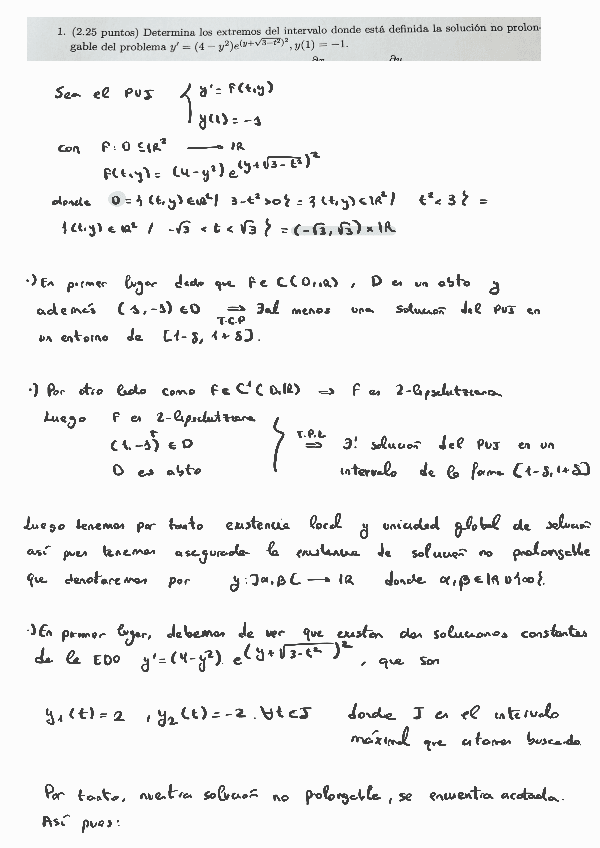 1. (2.25 puntos) Determina los extremos del intervalo donde está definida la solución no prolon-
gable del problema y' = (4 − y²)e^{(y+√(3−t²))²}, y(1) = −1.
Sea el PVI { y' = f(t,y)
y(1) = -1
con f: D ⊆ ℝ² ⟶ ℝ
f(t,y) = (4-y²) e^{(y+√(3-t²))²}
donde D = { (t,y) ∈ ℝ² / 3-t² > 0 } = { (t,y) ∈ ℝ² / t² < 3 } =
{ (t,y) ∈ ℝ² / -√3 < t < √3 } = (-√3, √3) × ℝ
·) En primer lugar dado que f ∈ C(D,ℝ), D es un abto y
además (1,-1) ∈ D ⟹ ∃ al menos una solución del PVI en
T.C.P
un entorno de [1-δ, 1+δ].
·) Por otro lado como f ∈ C¹(D,ℝ) ⟹ f es 2-lipschitziana
Luego f es 2-lipschitziana
(1,-1) ∈ D
D es abto
} T.P.L ⟹ ∃! solución del PVI en un
intervalo de la forma [1-δ, 1+δ]
Luego tenemos por tanto existencia local y unicidad global de solución
así pues tenemos asegurada la existencia de solución no prolongable
que denotaremos por y: ]α,β[ ⟶ ℝ donde α,β ∈ ℝ ∪ {∞}.
·) En primer lugar, debemos de ver que existen dos soluciones constantes
de la EDO y' = (4-y²) · e^{(y+√(3-t²))²}, que son
y₁(t) = 2 , y₂(t) = -2 . ∀t ∈ J donde J es el intervalo
máximal que estamos buscando
Por tanto, nuestra solución no polongable, se encuentra acotada.
Así pues: